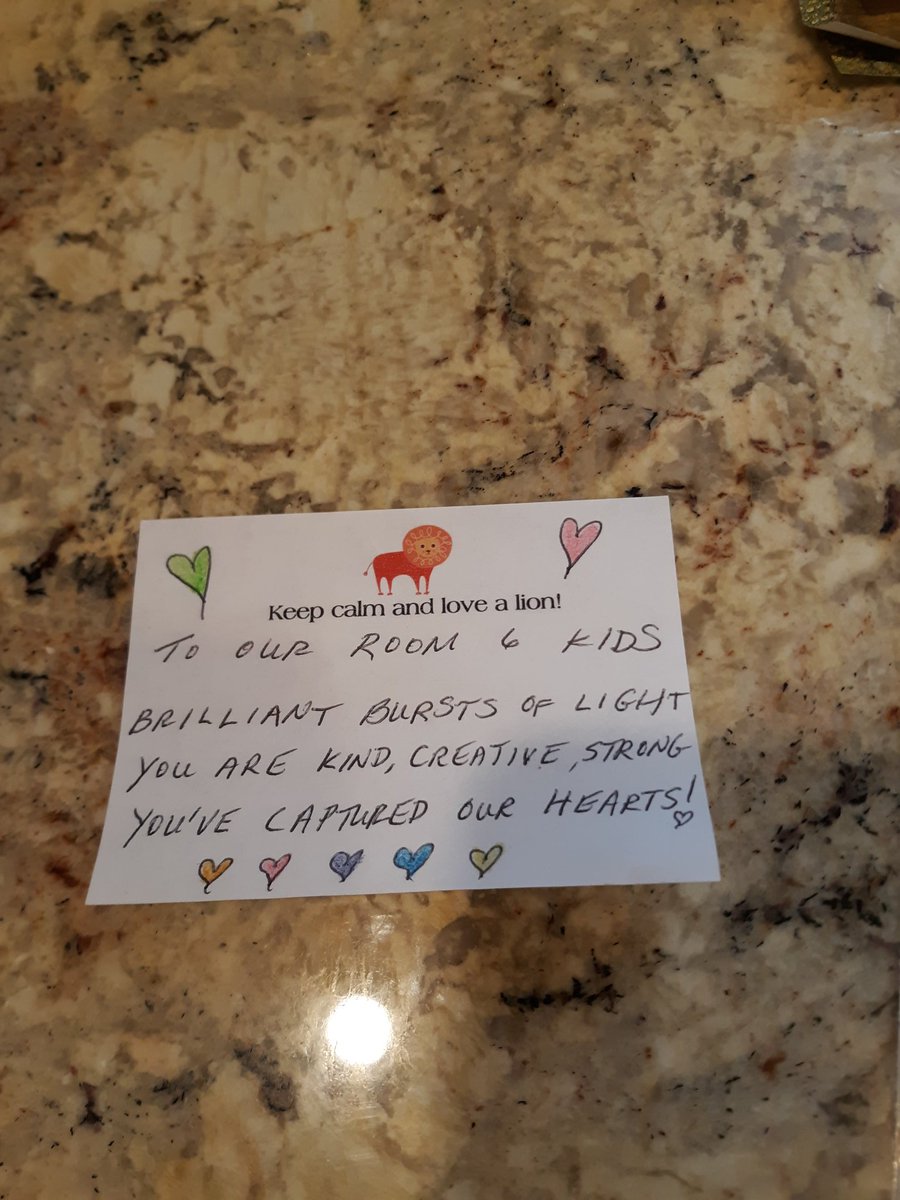 Keep calm and love a lion!
TO OUR ROOM 6 KIDS
BRILLIANT BURSTS OF LIGHT
YOU ARE KIND, CREATIVE, STRONG
YOU'VE CAPTURED OUR HEARTS!